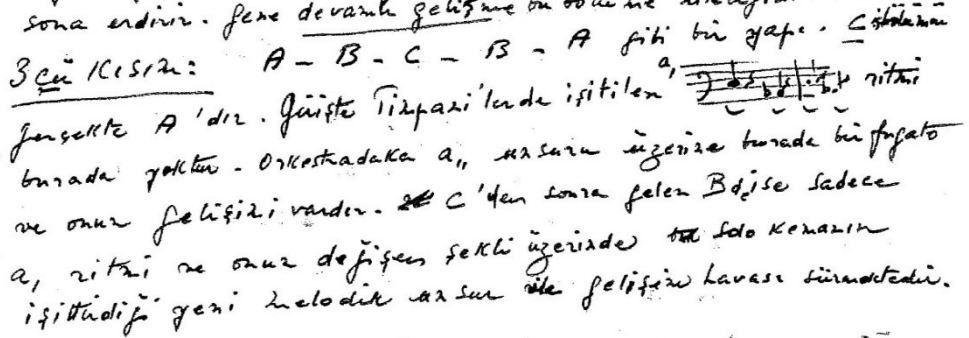 sona erdirir. Gene devamlı gelişme bu bölüme
3cü Kısım: A - B - C - B - A gibi bir yapı. C
gerçekte A'dır. Girişte Timpani'lerde işitilen a, ritmi
burada yoktur. Orkestradaki a,, unsuru üzerine burada bir fugato
ve onun gelişimi vardır. C'den sonra gelen B de ise sadece
a, ritmi ve onun değişen şekli üzerinde solo kemanın
işittirdiği yeni melodik unsur ile gelişim havası sürmektedir.